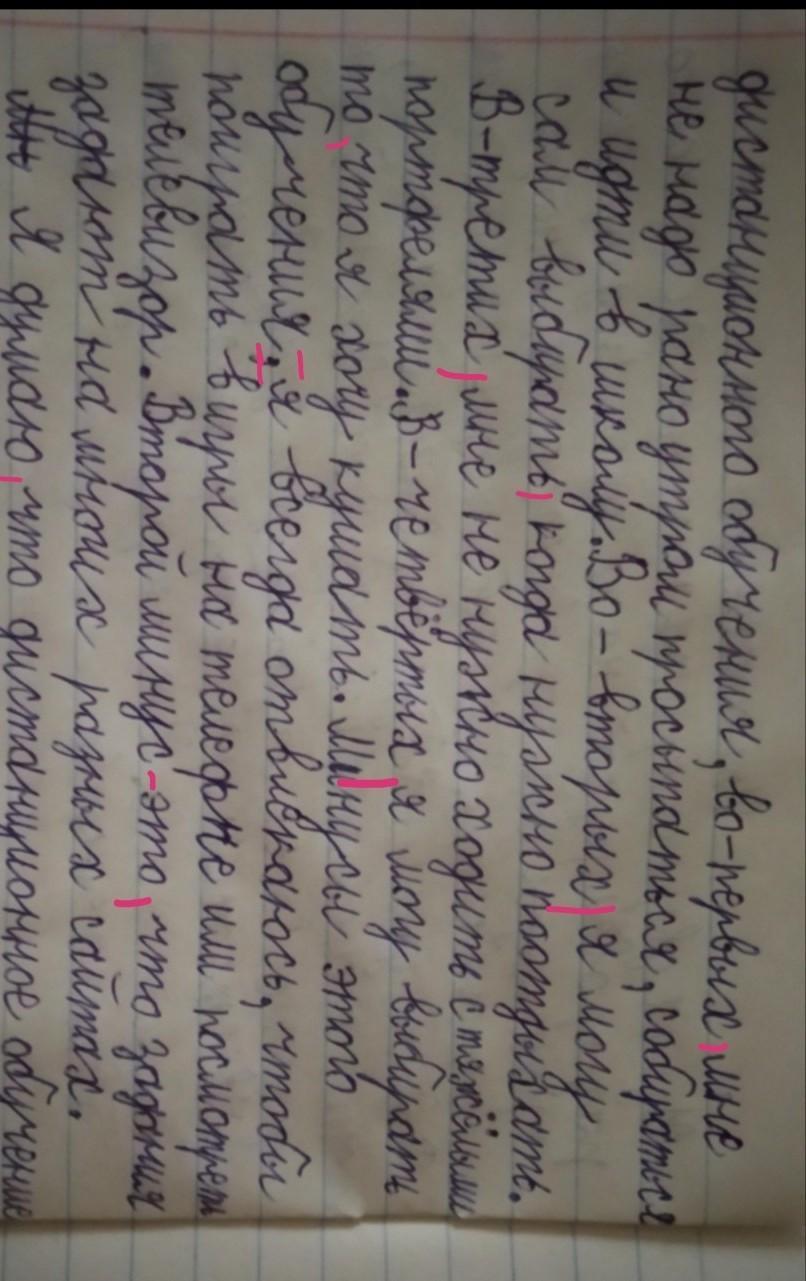 дистанционного обучения, во-первых, мне
не надо рано утром просыпаться, собираться
и идти в школу. Во-вторых, я могу
сам выбирать, когда нужно поотдыхать.
В-третих, мне не нужно ходить с тяжёлыми
портфелями. В-четвёртых, я могу выбирать
то, что я хочу кушать. Минусы этого
обучения: я всегда отвлекаюсь, чтобы
поиграть в игры на телефоне или посмотреть
телевизор. Второй минус - это, что задания
задают на многих разных сайтах.
Я думаю, что дистанционное обучение